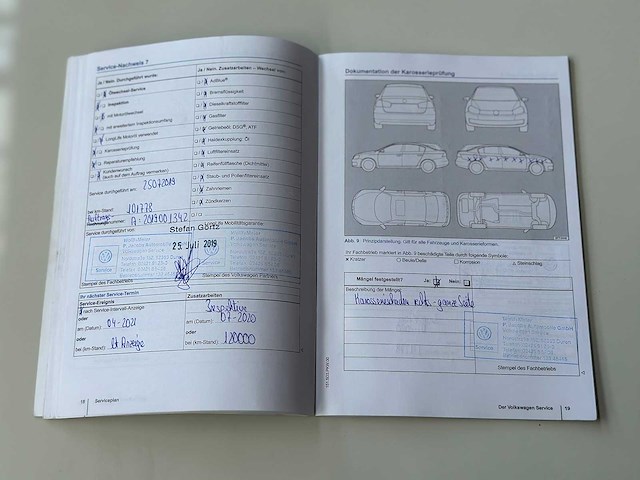 Service-Nachweis 7
Ja / Nein. Durchgeführt wurde:
Ölwechsel-Service
Inspektion
mit Motorölwechsel
mit erweitertem Inspektionsumfang
LongLife Motoröl verwendet
Karosserieprüfung
Reparaturempfehlung
Kundenwunsch
(auch auf Auftrag vermerken)
Service durchgeführt am: 25072019
bei km-Stand: 101778
A: 2019001342
Service durchgeführt von:
Stefan Görtz
25. Juli 2019
Service
Stempel des Fachbetriebs
Ja / Nein. Zusatzarbeiten – Wechsel von:
AdBlue®
Bremsflüssigkeit
Dieselkraftstofffilter
Gasfilter
Getriebeöl: DSG®, ATF
Haldexkupplung: Öl
Luftfiltereinsatz
Reifenfüllflasche (Dichtmittel)
Staub- und Pollenfiltereinsatz
Zahnriemen
Zündkerzen
Mobilitätsgarantie
Stempel des Volkswagen Partners
Ihr nächster Service-Termin
Service-Ereignis
nach Service-Intervall-Anzeige
oder
am (Datum): 04-2021
oder
bei (km-Stand): lt Anzeige
Zusatzarbeiten
Inspektion
am (Datum): 07-2020
oder
bei (km-Stand): 120000
18 Serviceplan
Dokumentation der Karosserieprüfung
Abb. 9 Prinzipdarstellung. Gilt für alle Fahrzeuge und Karosserieformen.
Ihr Fachbetrieb markiert in Abb. 9 beschädigte Teile durch folgende Symbole:
× Kratzer ○ Beule/Delle □ Korrosion △ Steinschlag
Mängel festgestellt? Ja: Nein:
Beschreibung der Mängel:
Karosserieschaden rechts - ganze Seite
Service
Stempel des Fachbetriebs
Der Volkswagen Service 19